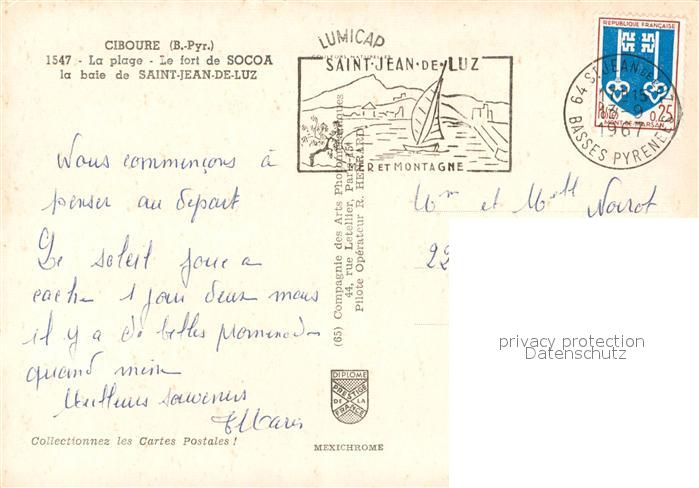 CIBOURE (B.-Pyr.)
1547 - La plage - Le fort de SOCOA
la baie de SAINT-JEAN-DE-LUZ
LUMICAP
SAINT-JEAN-DE-LUZ
MER ET MONTAGNE
REPUBLIQUE FRANCAISE
POSTES
0,25
MONT-DE-MARSAN
64 ST JEAN DE LUZ
1967
BASSES PYRENEES
Nous commençons à
penser au depart
Le soleil joue a
cache 1 jour deux mais
il y a de belles promenades
quand meme
Meilleurs souvenirs
Collectionnez les Cartes Postales !
(65) Compagnie des Arts Photomécaniques
44, rue Letellier, Paris-15e
Pilote Opérateur R. HENRARD
DIPLOME
PRESTIGE
DE LA
FRANCE
MEXICHROME
Mm et Melle
22
privacy protection
Datenschutz